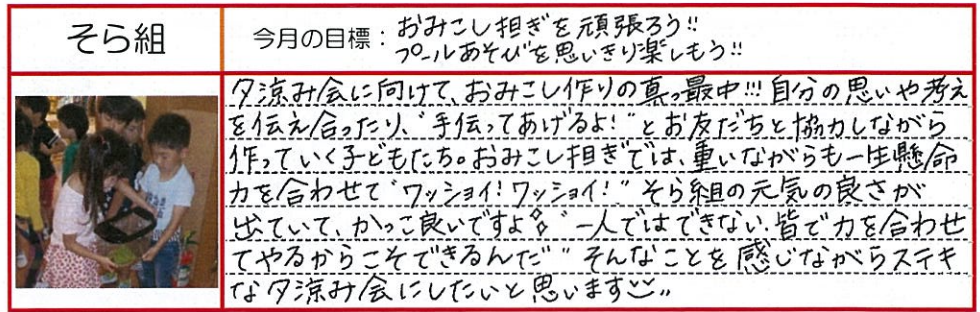 そら組
今月の目標：おみこし担ぎを頑張ろう!!
プールあそびを思いきり楽しもう!!
夕涼み会に向けて、おみこし作りの真っ最中!!!自分の思いや考え
を伝え合ったり、"手伝ってあげるよ!"とお友だちと協力しながら
作っていく子どもたち。おみこし担ぎでは、重いながらも一生懸命
力を合わせて"ワッショイ!ワッショイ!"そら組の元気の良さが
出ていて、かっこ良いですよ "一人ではできない.皆で力を合わせ
てやるからこそできるんだ"そんなことを感じながらステキ
な夕涼み会にしたいと思います